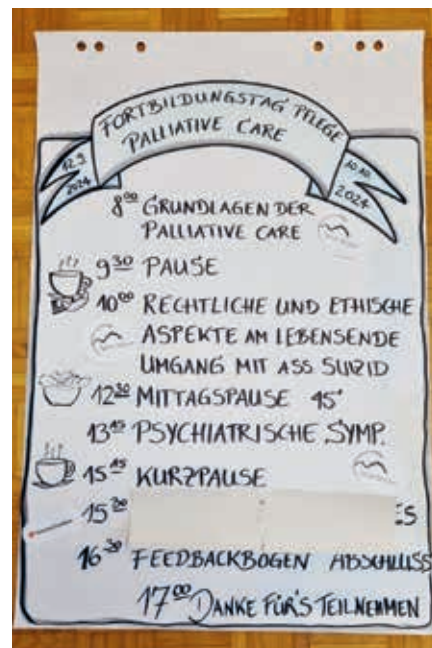 FORTBILDUNGSTAG PFLEGE
PALLIATIVE CARE
12.9.
2024
10.10.
2024
8⁰⁰ GRUNDLAGEN DER
PALLIATIVE CARE
9³⁰ PAUSE
10⁰⁰ RECHTLICHE UND ETHISCHE
ASPEKTE AM LEBENSENDE
UMGANG MIT ASS SUIZID
12³⁰ MITTAGSPAUSE 45'
13¹⁵ PSYCHIATRISCHE SYMP.
15¹⁵ KURZPAUSE
ES
16³⁰ FEEDBACKBOGEN ABSCHLUSS
17⁰⁰ DANKE FÜR'S TEILNEHMEN